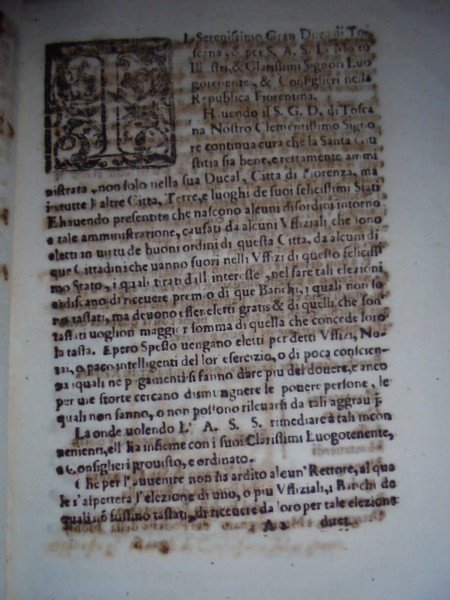 L Serenissimo Gran Duca di Tos
cana, & per S. A. S. Li Mol o
Ill stri, & Clarissimi Signori Luo
gotenente, & Consiglieri nella
Republica Fiorentina.
H uendo il S. G. D. di Tosca
na Nostro Clementissimo Signo
re continua cura che la Santa Giu
stitia sia bene, e rettamente ammi
nistrata, non solo nella sua Ducal, Citta di Fiorenza, ma
in tutte l'altre Citta, Terre, e luoghi de suoi felicissimi Stati
E hauendo presentito che nascono alcuni disordini intorno
a tale amministratione, causati da alcuni Vffitiali che sono
eletti in virtu de buoni ordini di questa Citta, da alcuni di
que Cittadini che uanno fuori nelli Vffizi di questo felicissi
mo Stato, i quali tirati dall interesse, nel fare tali elezioni
ardiscano di riceuere premio di que Banchi, i quali non so
no tassati, ma deuono esser eletti gratis & di quelli che son
tassati uogliori maggior somma di quella che concede loro
la tassa. E pero Spesso uengano eletti per detti Vffizi, No
tai, o poco intelligenti del lor esercizio, o di poca conscien
za i quali ne pagamenti si fanno dare piu del douere, e anco
per uie storte cercano di smugnere le pouere persone, le
quali non sanno, o non possono rileuarsi da tali aggrau j.
La onde uolendo L' A. S. S. rimediare à tali incon
uenienti, ell' ha insieme con i suoi Clarissimi Luogotenente,
e Consiglieri prouisto, e ordinato.
Che per l'auuenire non sia ardito alcun' Rettore, al qua
le s'aspettera l'elezione di uno, o piu Vffiziali, i Banchi de
quali nõ sussino tassati, di riceuere da loro per tale elezione
A a duet.